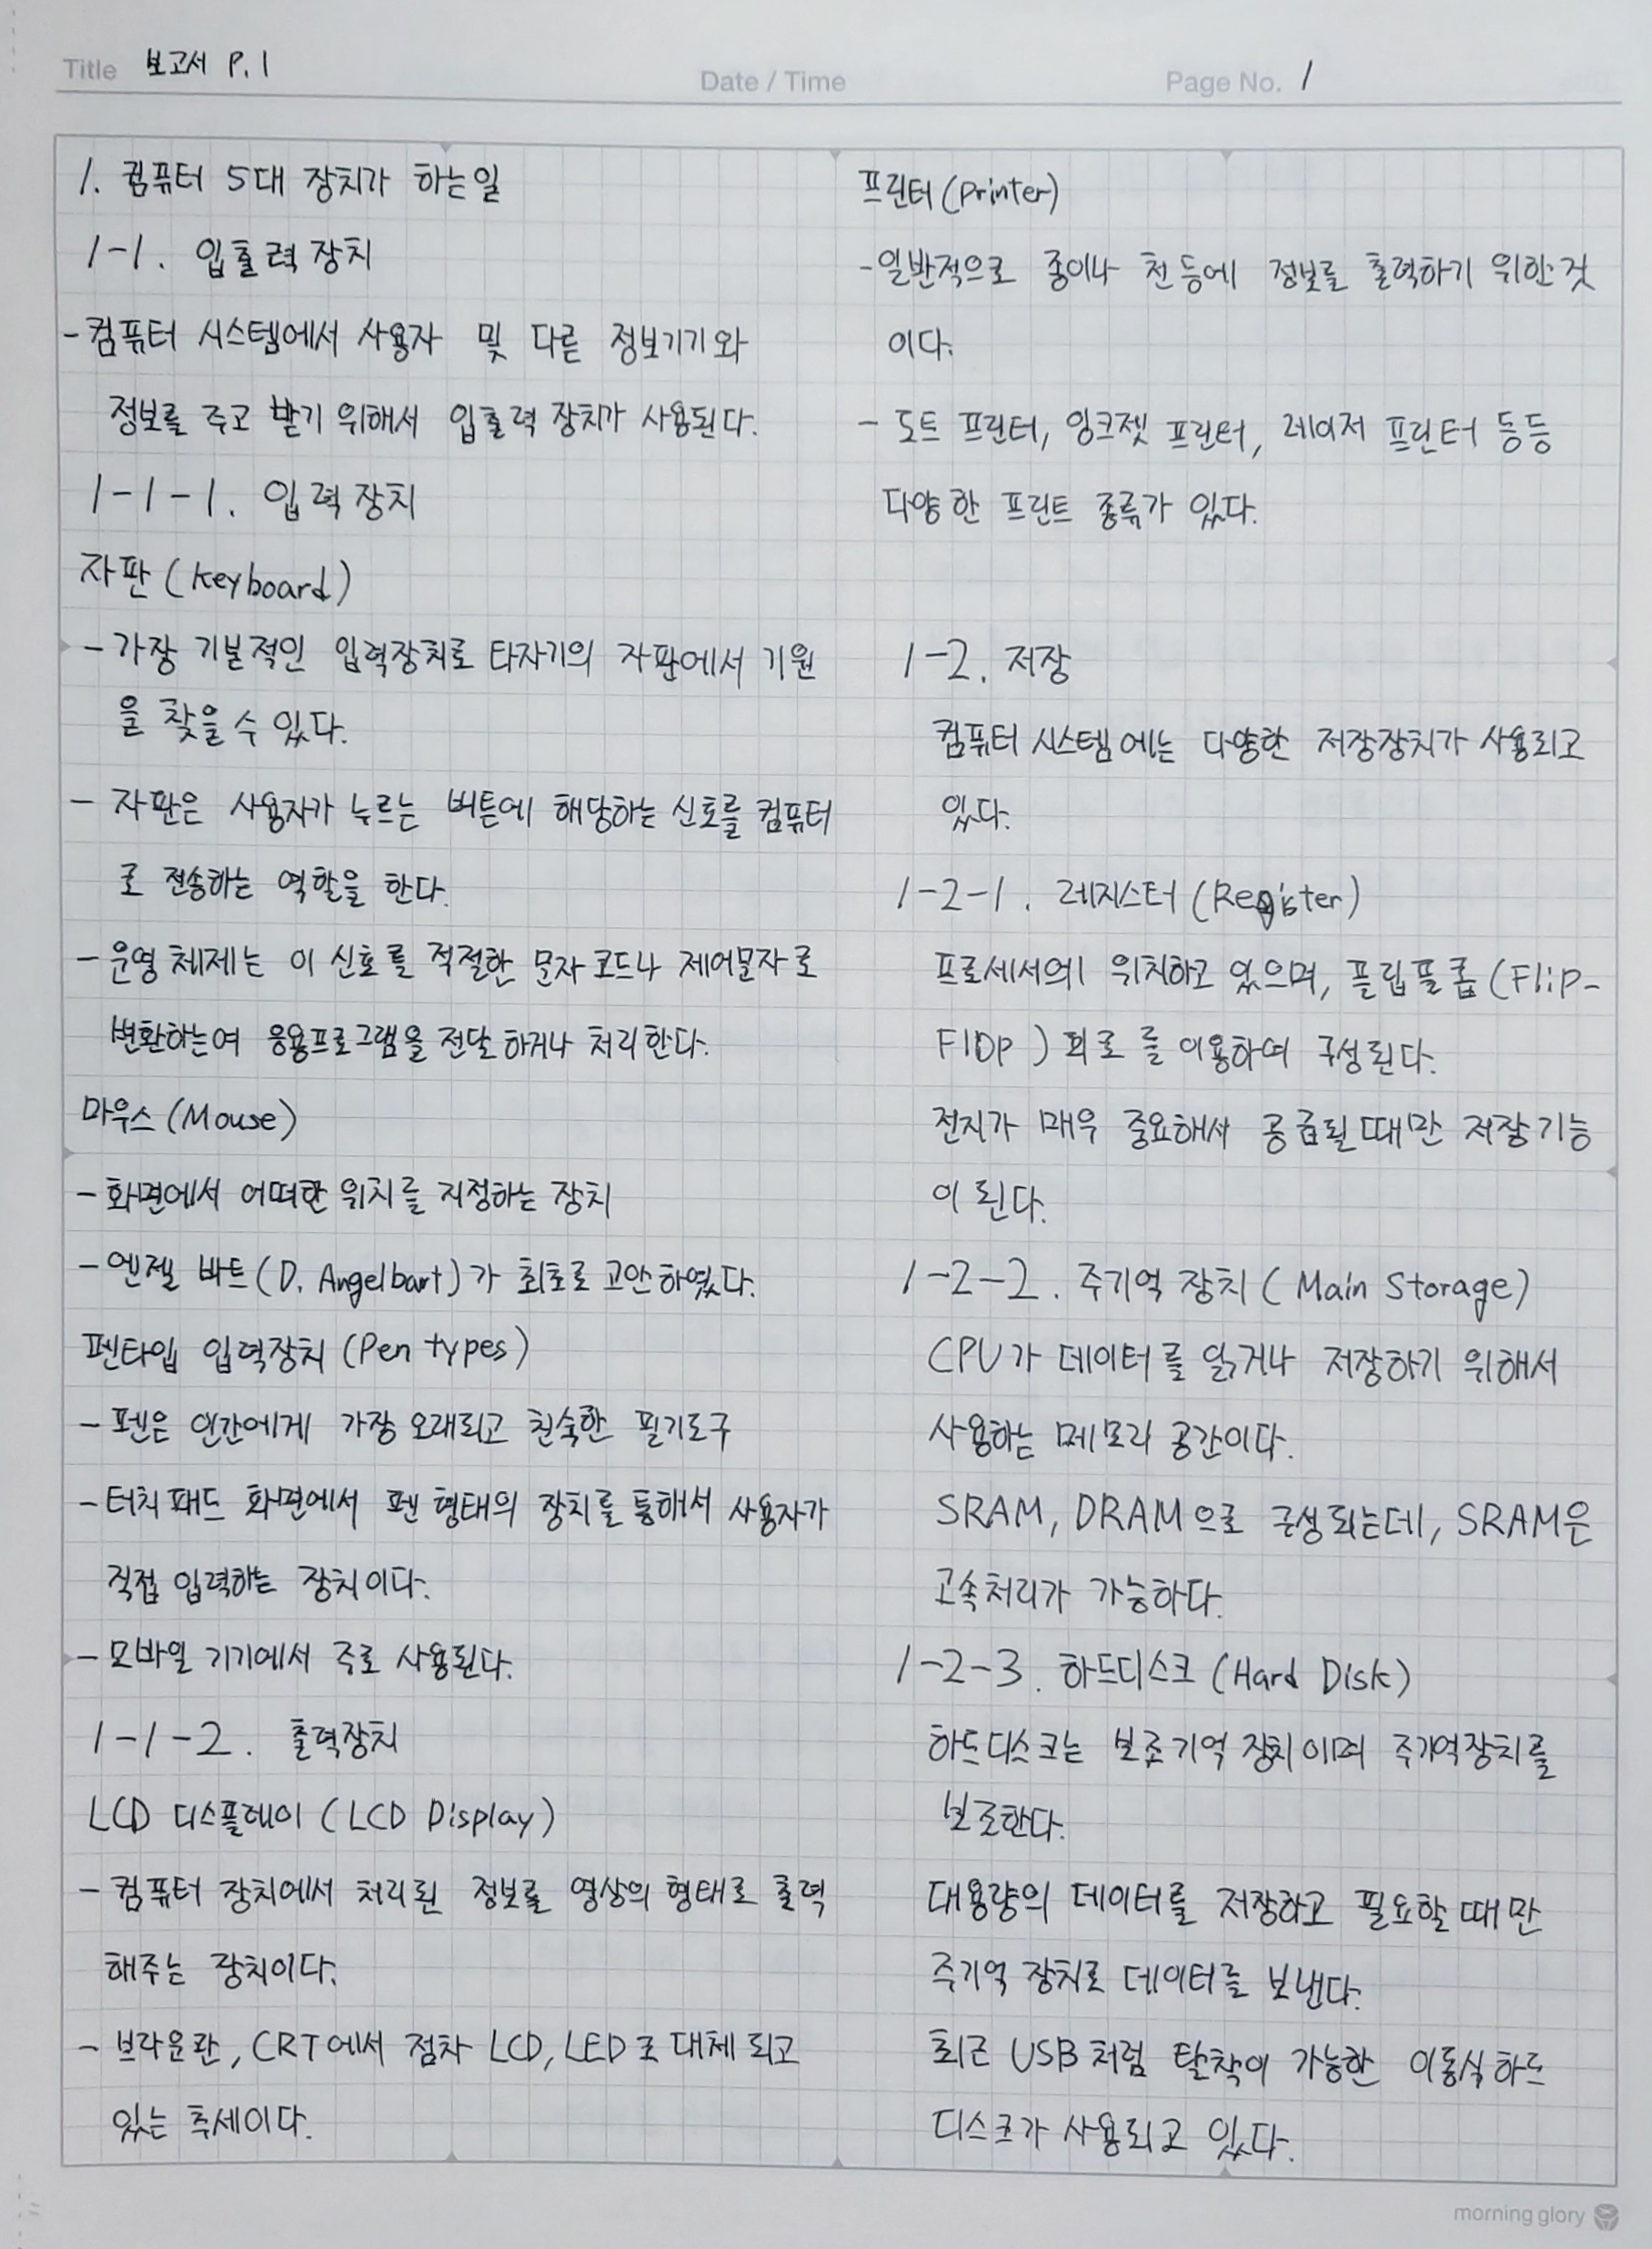 Title 보고서 P.1
Date / Time
Page No. 1
1. 컴퓨터 5대 장치가 하는일
1-1. 입출력 장치
-컴퓨터 시스템에서 사용자 및 다른 정보기기와
정보를 주고 받기 위해서 입출력 장치가 사용된다.
1-1-1. 입력장치
자판(Keyboard)
-가장 기본적인 입력장치로 타자기의 자판에서 기원
을 찾을 수 있다.
- 자판은 사용자가 누르는 버튼에 해당하는 신호를 컴퓨터
로 전송하는 역할을 한다.
-운영 체제는 이 신호를 적절한 문자코드나 제어문자로
변환하는여 응용프로그램을 전달 하거나 처리한다.
마우스(Mouse)
-화면에서 어떠한 위치를 지정하는 장치
-엔젤 바트(D. Angelbart)가 최초로 고안하였다.
펜타입 입력장치(Pen types)
- 펜은 인간에게 가장 오래되고 친숙한 필기도구
-터치패드 화면에서 펜 형태의 장치를 통해서 사용자가
직접 입력하는 장치이다.
-모바일 기기에서 주로 사용된다.
1-1-2. 출력장치
LCD 디스플레이(LCD Display)
-컴퓨터 장치에서 처리된 정보를 영상의 형태로 출력
해주는 장치이다.
- 브라운관, CRT에서 점차 LCD, LED로 대체되고
있는 추세이다.
프린터(printer)
-일반적으로 종이나 천 등에 정보를 출력하기 위한것
이다.
- 도트 프린터, 잉크젯 프린터, 레이저 프린터 등등
다양한 프린트 종류가 있다.
1-2. 저장
컴퓨터 시스템에는 다양한 저장장치가 사용되고
있다.
1-2-1. 레지스터(Register)
프로세서에 위치하고 있으며, 플립플롭(Flip-
Flop) 회로를 이용하여 구성된다.
전지가 매우 중요해서 공급될때만 저장기능
이 된다.
1-2-2. 주기억 장치(Main Storage)
CPU가 데이터를 읽거나 저장하기 위해서
사용하는 메모리 공간이다.
SRAM, DRAM으로 구성되는데, SRAM은
고속처리가 가능하다.
1-2-3. 하드디스크(Hard Disk)
하드디스크는 보조기억 장치이며 주기억장치를
보조한다.
대용량의 데이터를 저장하고 필요할 때만
주기억 장치로 데이터를 보낸다.
최근 USB처럼 탈착이 가능한 이동식 하드
디스크가 사용되고 있다.
morning glory